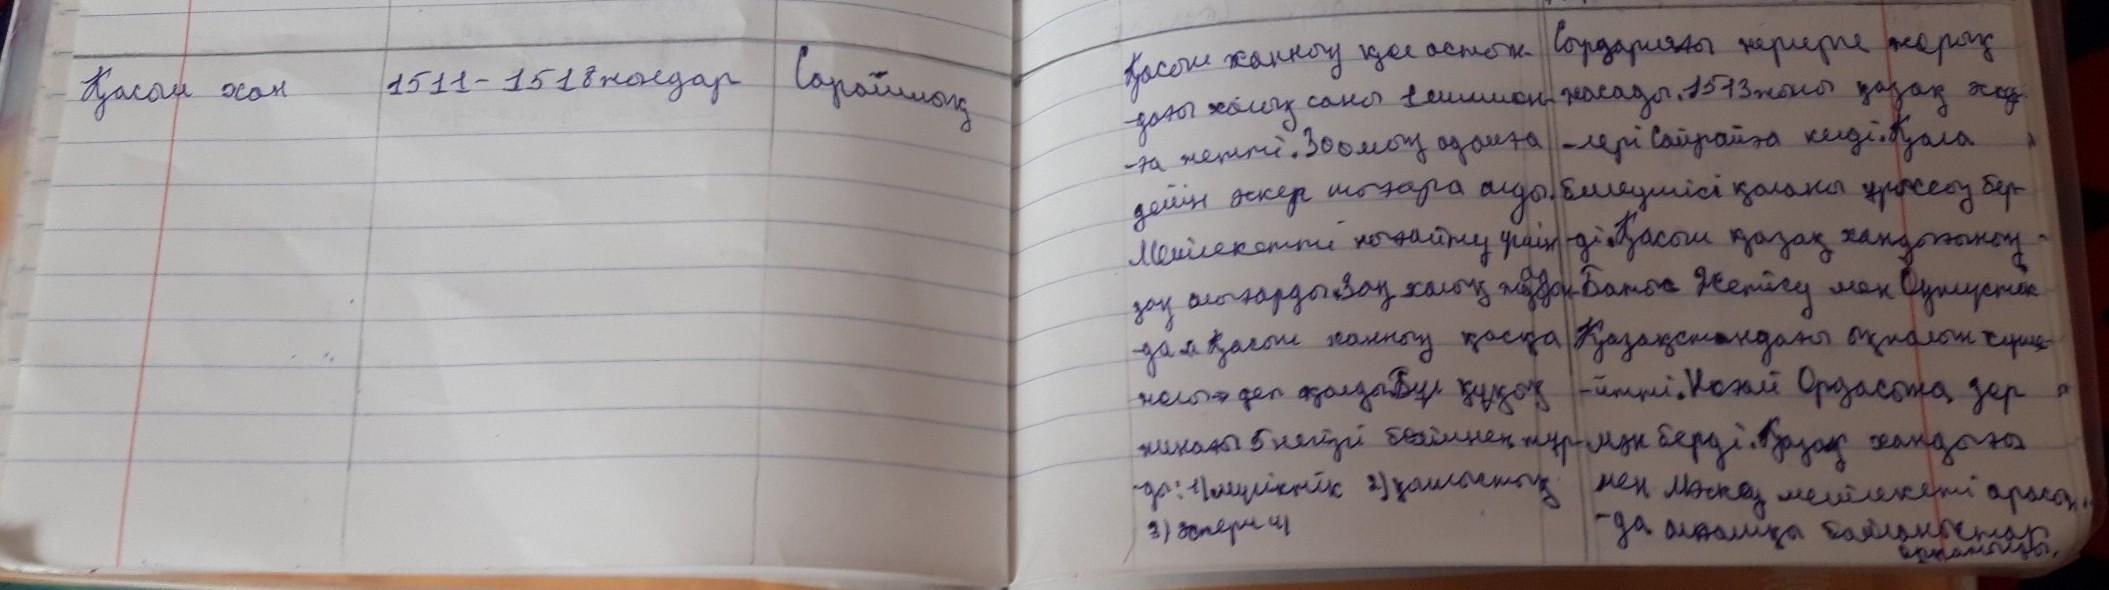 Қасым хан
1511-1518 жылдар
Сарайшық
Қасым ханның қол астын-
-дағы халық саны 1 миллион-
-ға жетті. 300 мың адамға
дейін әскер шығара алды.
Мемлекетті нығайту үшін
заң шығарды. Заң халық
-да «Қасым ханның қасқа
жолы» деп қалды. Бұл құқық
жинағы 5 негізгі бөлімнен тұр-
-ды: 1) мүліктік 2) қылмыстық
3) әскери 4)
Сырдарияғы жерлерге жорық
жасады. 1513 жылы қазақ
-лері Сайрамға келді. Қала
билеушісі қаланы ұрыссыз бер-
-ді. Қасым қазақ хандығының
Батыс Жетісу мен Оңтүстік
Қазақстандағы ықпалын күше-
-йтті. Ноғай Ордасына дер
мән берді. Қазақ хандығы
мен Мәскеу мемлекеті арасын-
-да алғашқы байланыстар
орнатылды.